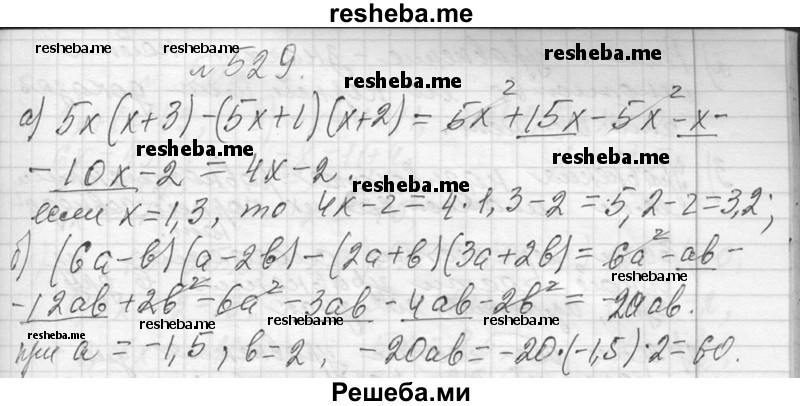 resheba.me
resheba.me resheba.me
№ 529.
resheba.me resheba.me
а) 5x(x+3)-(5x+1)(x+2)= 5x²+15x-5x²-x-
resheba.me
-10x-2 = 4x-2.
resheba.me
если x=1,3, то 4x-2=4·1,3-2=5,2-2=3,2;
resheba.me
б) (6a-b)(a-2b)-(2a+b)(3a+2b)= 6a²-ab-
resheba.me resheba.me
-12ab+2b²-6a²-3ab-4ab-2b²= -20ab.
resheba.me resheba.me resheba.me
при a=-1,5; b=2, -20ab=-20·(-1,5)·2=60.
Решеба.ми